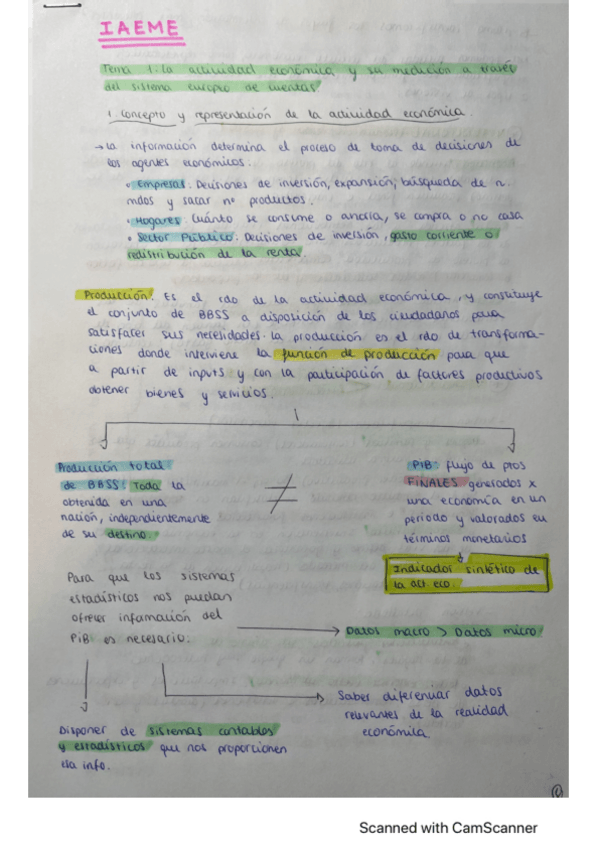 IAEME
Tema 1: La actividad económica y su medición a través
del sistema europeo de cuentas.
1. Concepto y representación de la actividad económica.
→ La información determina el proceso de toma de decisiones de
los agentes económicos.
• Empresas: Decisiones de inversión, expansión, búsqueda de n.
mdos y sacar nº productos.
• Hogares: Cuánto se consume o ahorra, se compra o no casa
• Sector Público: Decisiones de inversión, gasto corriente o
redistribución de la renta.
Producción: Es el rdo de la actividad económica, y constituye
el conjunto de BBSS a disposición de los ciudadanos para
satisfacer sus necesidades. La producción es el rdo de transforma-
ciones donde interviene la función de producción para que
a partir de inputs y con la participación de factores productivos
obtener bienes y servicios.
Producción total
de BBSS: Toda la
obtenida en una
nación, independientemente
de su destino.
≠
PiB: flujo de ptos
FiNALES generados x
una economía en un
periodo y valorados en
términos monetarios
Indicador sintético de
la act. eco.
Para que los sistemas
estadísticos nos puedan
ofrecer información del
PiB es necesario:
Datos macro > Datos micro
Saber diferenciar datos
relevantes de la realidad
económica.
Disponer de sistemas contables
y estadísticos que nos proporcionen
la info.
Scanned with CamScanner